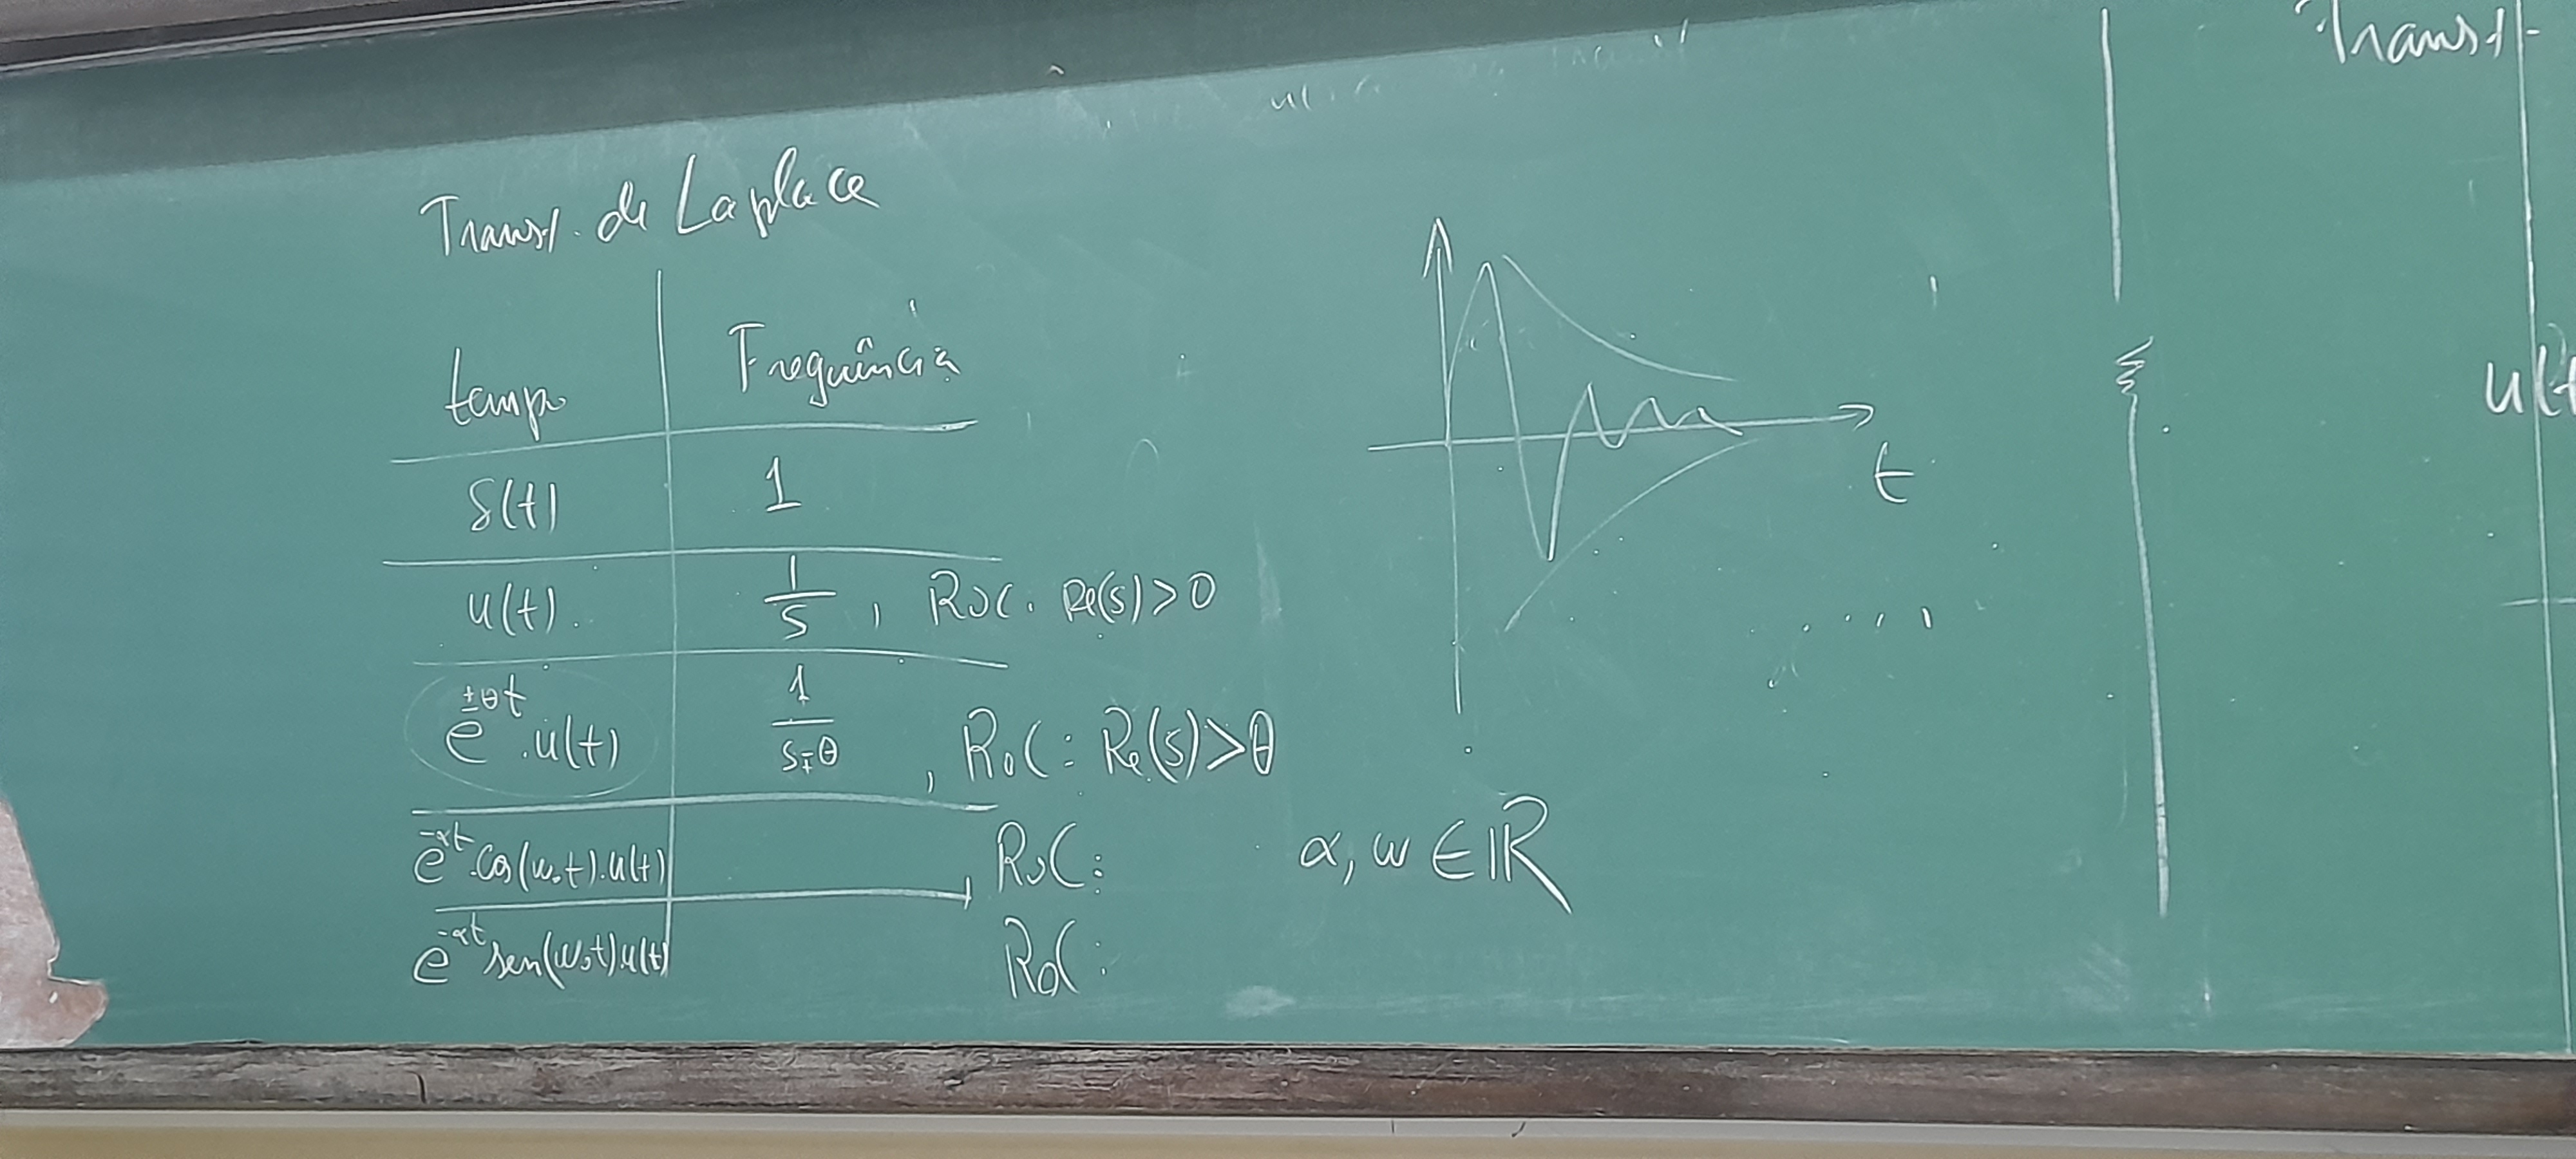 Transf. de Laplace
tempo Frequência
δ(t) 1
u(t) 1/s , RoC. Re(s)>0
e^{±θt}.u(t) 1/(s∓θ) , RoC: Re(s)>θ
e^{-αt}.cos(ω₀t).u(t) , RoC:
e^{-αt} sen(ω₀t)u(t) RoC:
t
α, ω ∈ ℝ
Transf
u(t